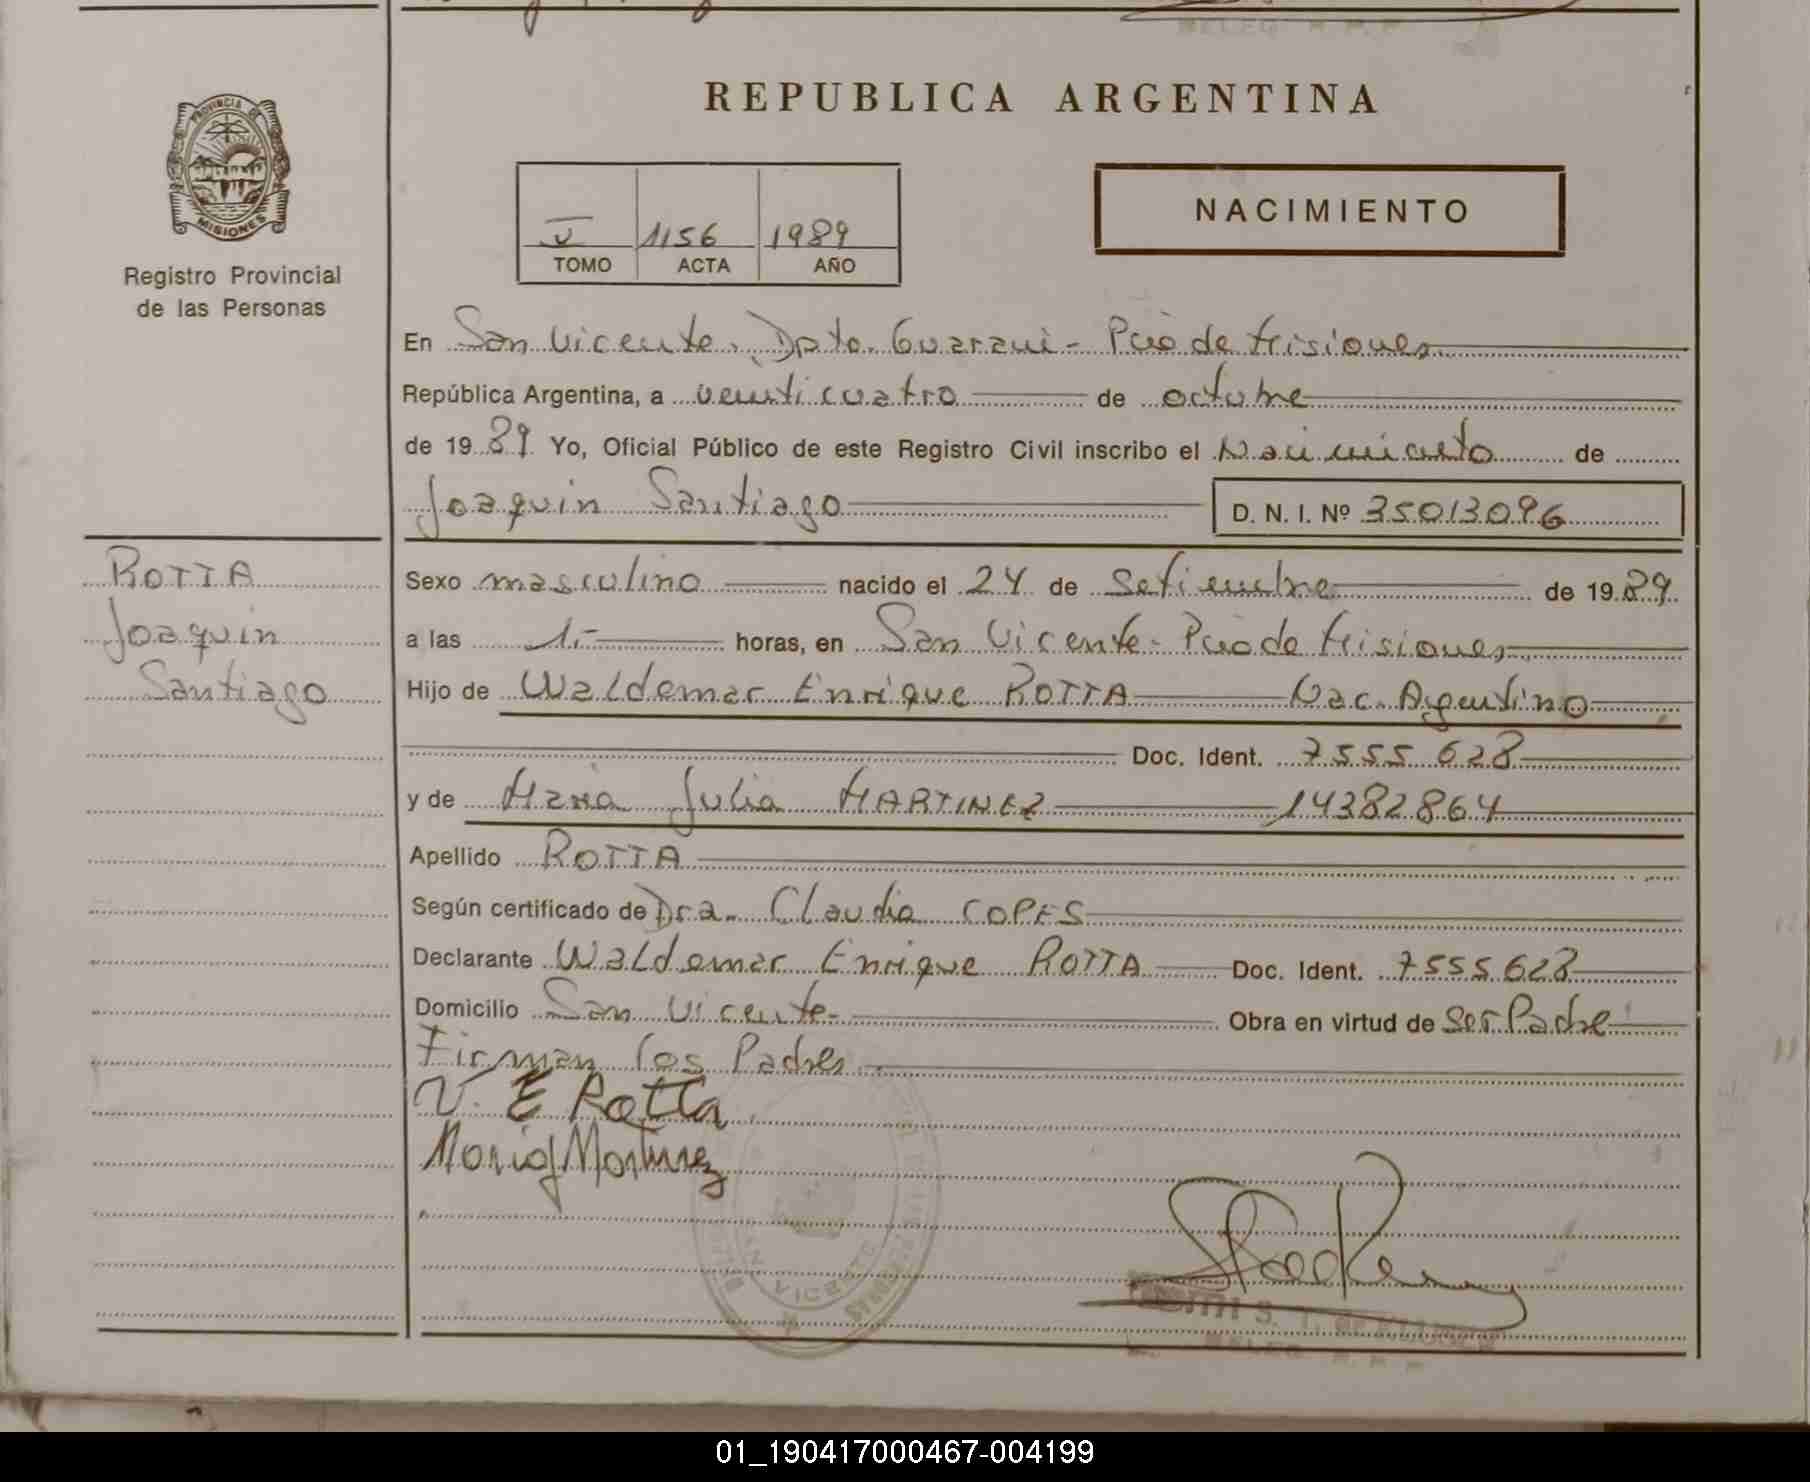 REPUBLICA ARGENTINA
PROVINCIA DE
MISIONES
Registro Provincial
de las Personas
V 1156 1989
TOMO ACTA AÑO
NACIMIENTO
En San Vicente, Dpto. Guaraní - Pcia de Misiones
República Argentina, a veinticuatro de octubre
de 1989 Yo, Oficial Público de este Registro Civil inscribo el Nacimiento de
Joaquin Santiago D. N. I. Nº 35013096
ROTTA
Joaquin
Santiago
Sexo masculino nacido el 24 de Setiembre de 1989
a las 1.- horas, en San Vicente - Pcia de Misiones
Hijo de Waldemar Enrique ROTTA Nac. Argentino
Doc. Ident. 7555628
y de Maria Julia MARTINEZ 14382864
Apellido ROTTA
Según certificado de Dra. Claudia COPES
Declarante Waldemar Enrique ROTTA Doc. Ident. 7555628
Domicilio San Vicente Obra en virtud de Ser Padre
Firman los Padres
V. E Rotta
Maria J Martinez
SAN VICENTE
01_190417000467-004199